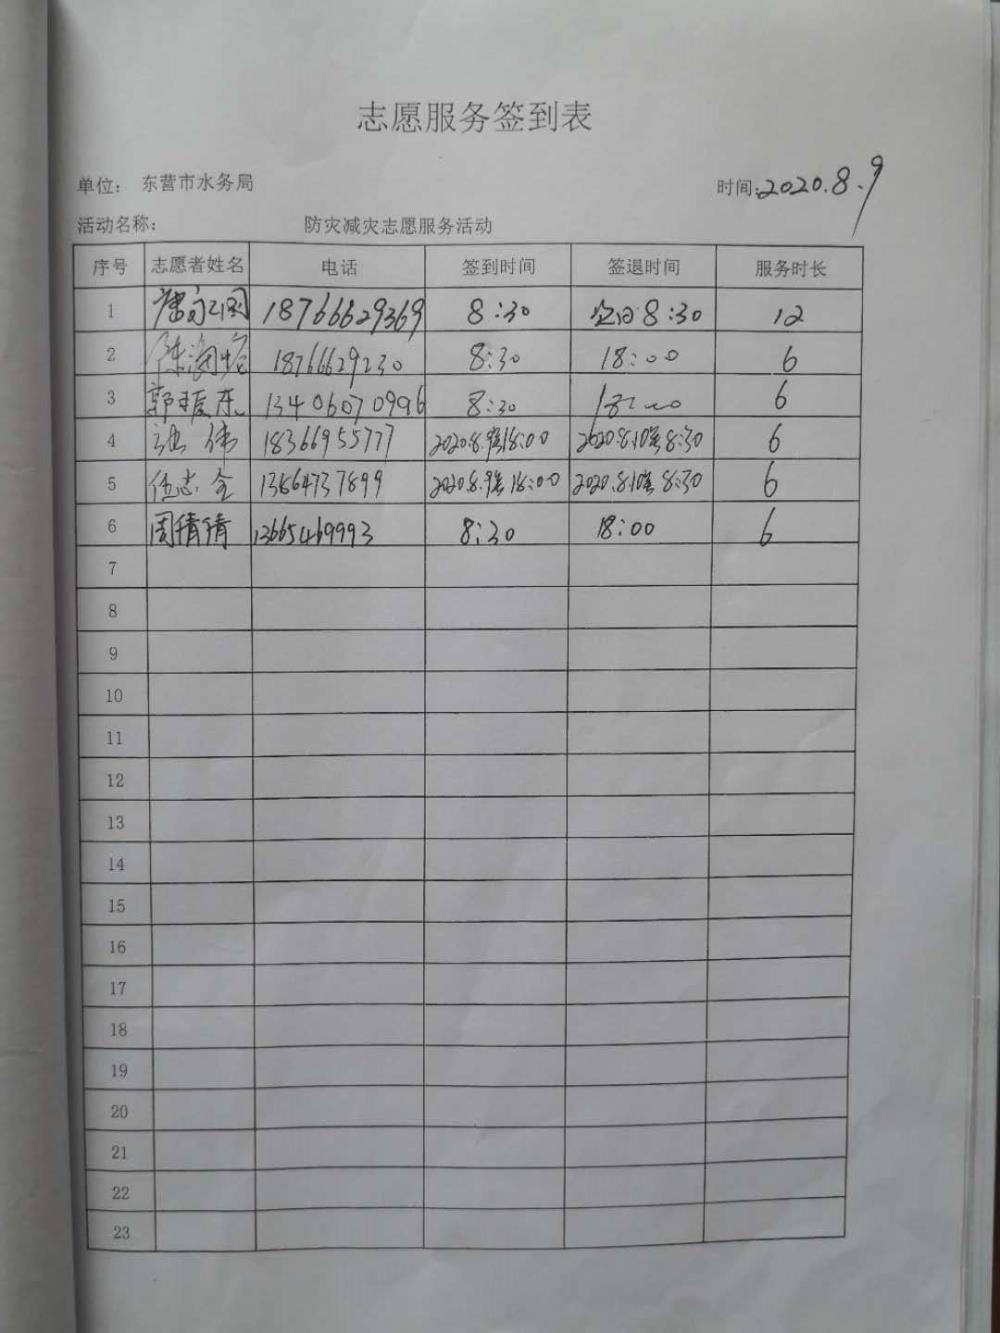 志愿服务签到表
单位： 东营市水务局 时间:2020.8.9
活动名称： 防灾减灾志愿服务活动
序号 志愿者姓名 电话 签到时间 签退时间 服务时长
1 18766629369 8:30 次日8:30 12
2 18766629230 8:30 18:00 6
3 郭瑷东 13406070996 8:30 18:00 6
4 张伟 18366955777 2020.8.9 18:00 2020.8.10 8:30 6
5 伍志全 13864737899 2020.8.9 18:00 2020.8.10 8:30 6
6 周倩倩 13665469993 8:30 18:00 6
7
8
9
10
11
12
13
14
15
16
17
18
19
20
21
22
23